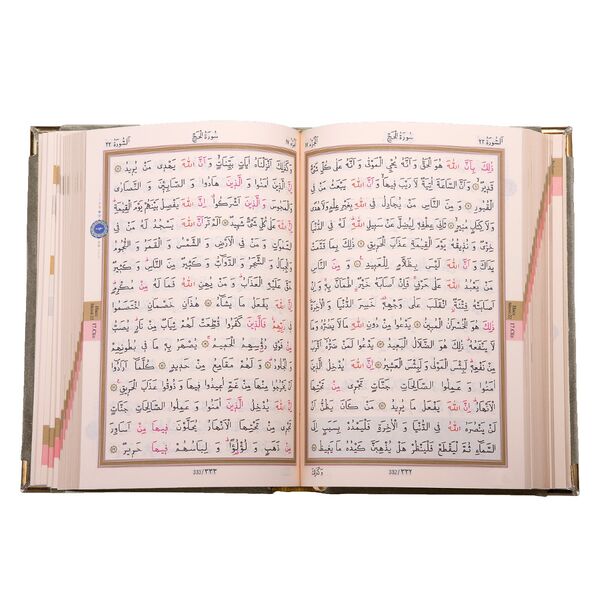 اَلسُّورَةُ ٢٢
سُورَةُ الْحَجِّ
ذٰلِكَ بِاَنَّ اللّٰهَ هُوَ الْحَقُّ وَ اَنَّهُ يُحْيِ الْمَوْتٰى وَ اَنَّهُ عَلٰى كُلِّ شَيْءٍ
قَدِيرٌ وَ اَنَّ السَّاعَةَ اٰتِيَةٌ لَا رَيْبَ فِيهَا وَ اَنَّ اللّٰهَ يَبْعَثُ مَنْ فِي
الْقُبُورِ وَ مِنَ النَّاسِ مَنْ يُجَادِلُ فِي اللّٰهِ بِغَيْرِ عِلْمٍ وَ لَا هُدًى
وَ لَا كِتَابٍ مُنِيرٍ ثَانِيَ عِطْفِهِ لِيُضِلَّ عَنْ سَبِيلِ اللّٰهِ لَهُ فِي الدُّنْيَا
خِزْيٌ وَ نُذِيقُهُ يَوْمَ الْقِيٰمَةِ عَذَابَ الْحَرِيقِ ذٰلِكَ بِمَا قَدَّمَتْ
يَدَاكَ وَ اَنَّ اللّٰهَ لَيْسَ بِظَلَّامٍ لِلْعَبِيدِ وَ مِنَ النَّاسِ
مَنْ يَعْبُدُ اللّٰهَ عَلٰى حَرْفٍ فَاِنْ اَصَابَهُ خَيْرٌ اطْمَاَنَّ بِهِ وَ اِنْ
اَصَابَتْهُ فِتْنَةٌ انْقَلَبَ عَلٰى وَجْهِهِ خَسِرَ الدُّنْيَا وَ الْاٰخِرَةَ
ذٰلِكَ هُوَ الْخُسْرَانُ الْمُبِينُ يَدْعُوا مِنْ دُونِ اللّٰهِ مَا لَا يَضُرُّهُ وَ مَا
لَا يَنْفَعُهُ ذٰلِكَ هُوَ الضَّلَالُ الْبَعِيدُ يَدْعُوا لَمَنْ ضَرُّهُ اَقْرَبُ
مِنْ نَفْعِهِ لَبِئْسَ الْمَوْلٰى وَ لَبِئْسَ الْعَشِيرُ اِنَّ اللّٰهَ يُدْخِلُ الَّذِينَ
اٰمَنُوا وَ عَمِلُوا الصَّالِحَاتِ جَنَّاتٍ تَجْرِي مِنْ تَحْتِهَا
الْاَنْهَارُ اِنَّ اللّٰهَ يَفْعَلُ مَا يُرِيدُ مَنْ كَانَ يَظُنُّ اَنْ لَنْ
يَنْصُرَهُ اللّٰهُ فِي الدُّنْيَا وَ الْاٰخِرَةِ فَلْيَمْدُدْ بِسَبَبٍ اِلَى
السَّمَاءِ ثُمَّ لْيَقْطَعْ فَلْيَنْظُرْ هَلْ يُذْهِبَنَّ كَيْدُهُ مَا يَغِيظُ
332/٣٣٢
وَكَذٰلِكَ
اَلسُّورَةُ ٢٢
سُورَةُ الْحَجِّ
وَ كَذٰلِكَ اَنْزَلْنَاهُ اٰيَاتٍ بَيِّنَاتٍ وَ اَنَّ اللّٰهَ يَهْدِي مَنْ يُرِيدُ
اِنَّ الَّذِينَ اٰمَنُوا وَ الَّذِينَ هَادُوا وَ الصَّابِئِينَ وَ النَّصَارٰى
وَ الْمَجُوسَ وَ الَّذِينَ اَشْرَكُوا اِنَّ اللّٰهَ يَفْصِلُ بَيْنَهُمْ يَوْمَ الْقِيٰمَةِ
اِنَّ اللّٰهَ عَلٰى كُلِّ شَيْءٍ شَهِيدٌ اَلَمْ تَرَ اَنَّ اللّٰهَ يَسْجُدُ لَهُ مَنْ فِي
السَّمٰوَاتِ وَ مَنْ فِي الْاَرْضِ وَ الشَّمْسُ وَ الْقَمَرُ وَ النُّجُومُ
وَ الْجِبَالُ وَ الشَّجَرُ وَ الدَّوَابُّ وَ كَثِيرٌ مِنَ النَّاسِ وَ كَثِيرٌ
حَقَّ عَلَيْهِ الْعَذَابُ وَ مَنْ يُهِنِ اللّٰهُ فَمَا لَهُ مِنْ مُكْرِمٍ
اِنَّ اللّٰهَ يَفْعَلُ مَا يَشَاءُ هٰذَانِ خَصْمَانِ اخْتَصَمُوا
فِي رَبِّهِمْ فَالَّذِينَ كَفَرُوا قُطِّعَتْ لَهُمْ ثِيَابٌ مِنْ نَارٍ يُصَبُّ
مِنْ فَوْقِ رُؤُسِهِمُ الْحَمِيمُ يُصْهَرُ بِهِ مَا فِي بُطُونِهِمْ
وَ الْجُلُودُ وَ لَهُمْ مَقَامِعُ مِنْ حَدِيدٍ كُلَّمَا اَرَادُوا
اَنْ يَخْرُجُوا مِنْهَا مِنْ غَمٍّ اُعِيدُوا فِيهَا وَ ذُوقُوا عَذَابَ الْحَرِيقِ
اِنَّ اللّٰهَ يُدْخِلُ الَّذِينَ اٰمَنُوا وَ عَمِلُوا الصَّالِحَاتِ جَنَّاتٍ
تَجْرِي مِنْ تَحْتِهَا الْاَنْهَارُ يُحَلَّوْنَ فِيهَا مِنْ اَسَاوِرَ
مِنْ ذَهَبٍ وَ لُؤْلُؤًا وَ لِبَاسُهُمْ فِيهَا حَرِيرٌ
333/٣٣٣